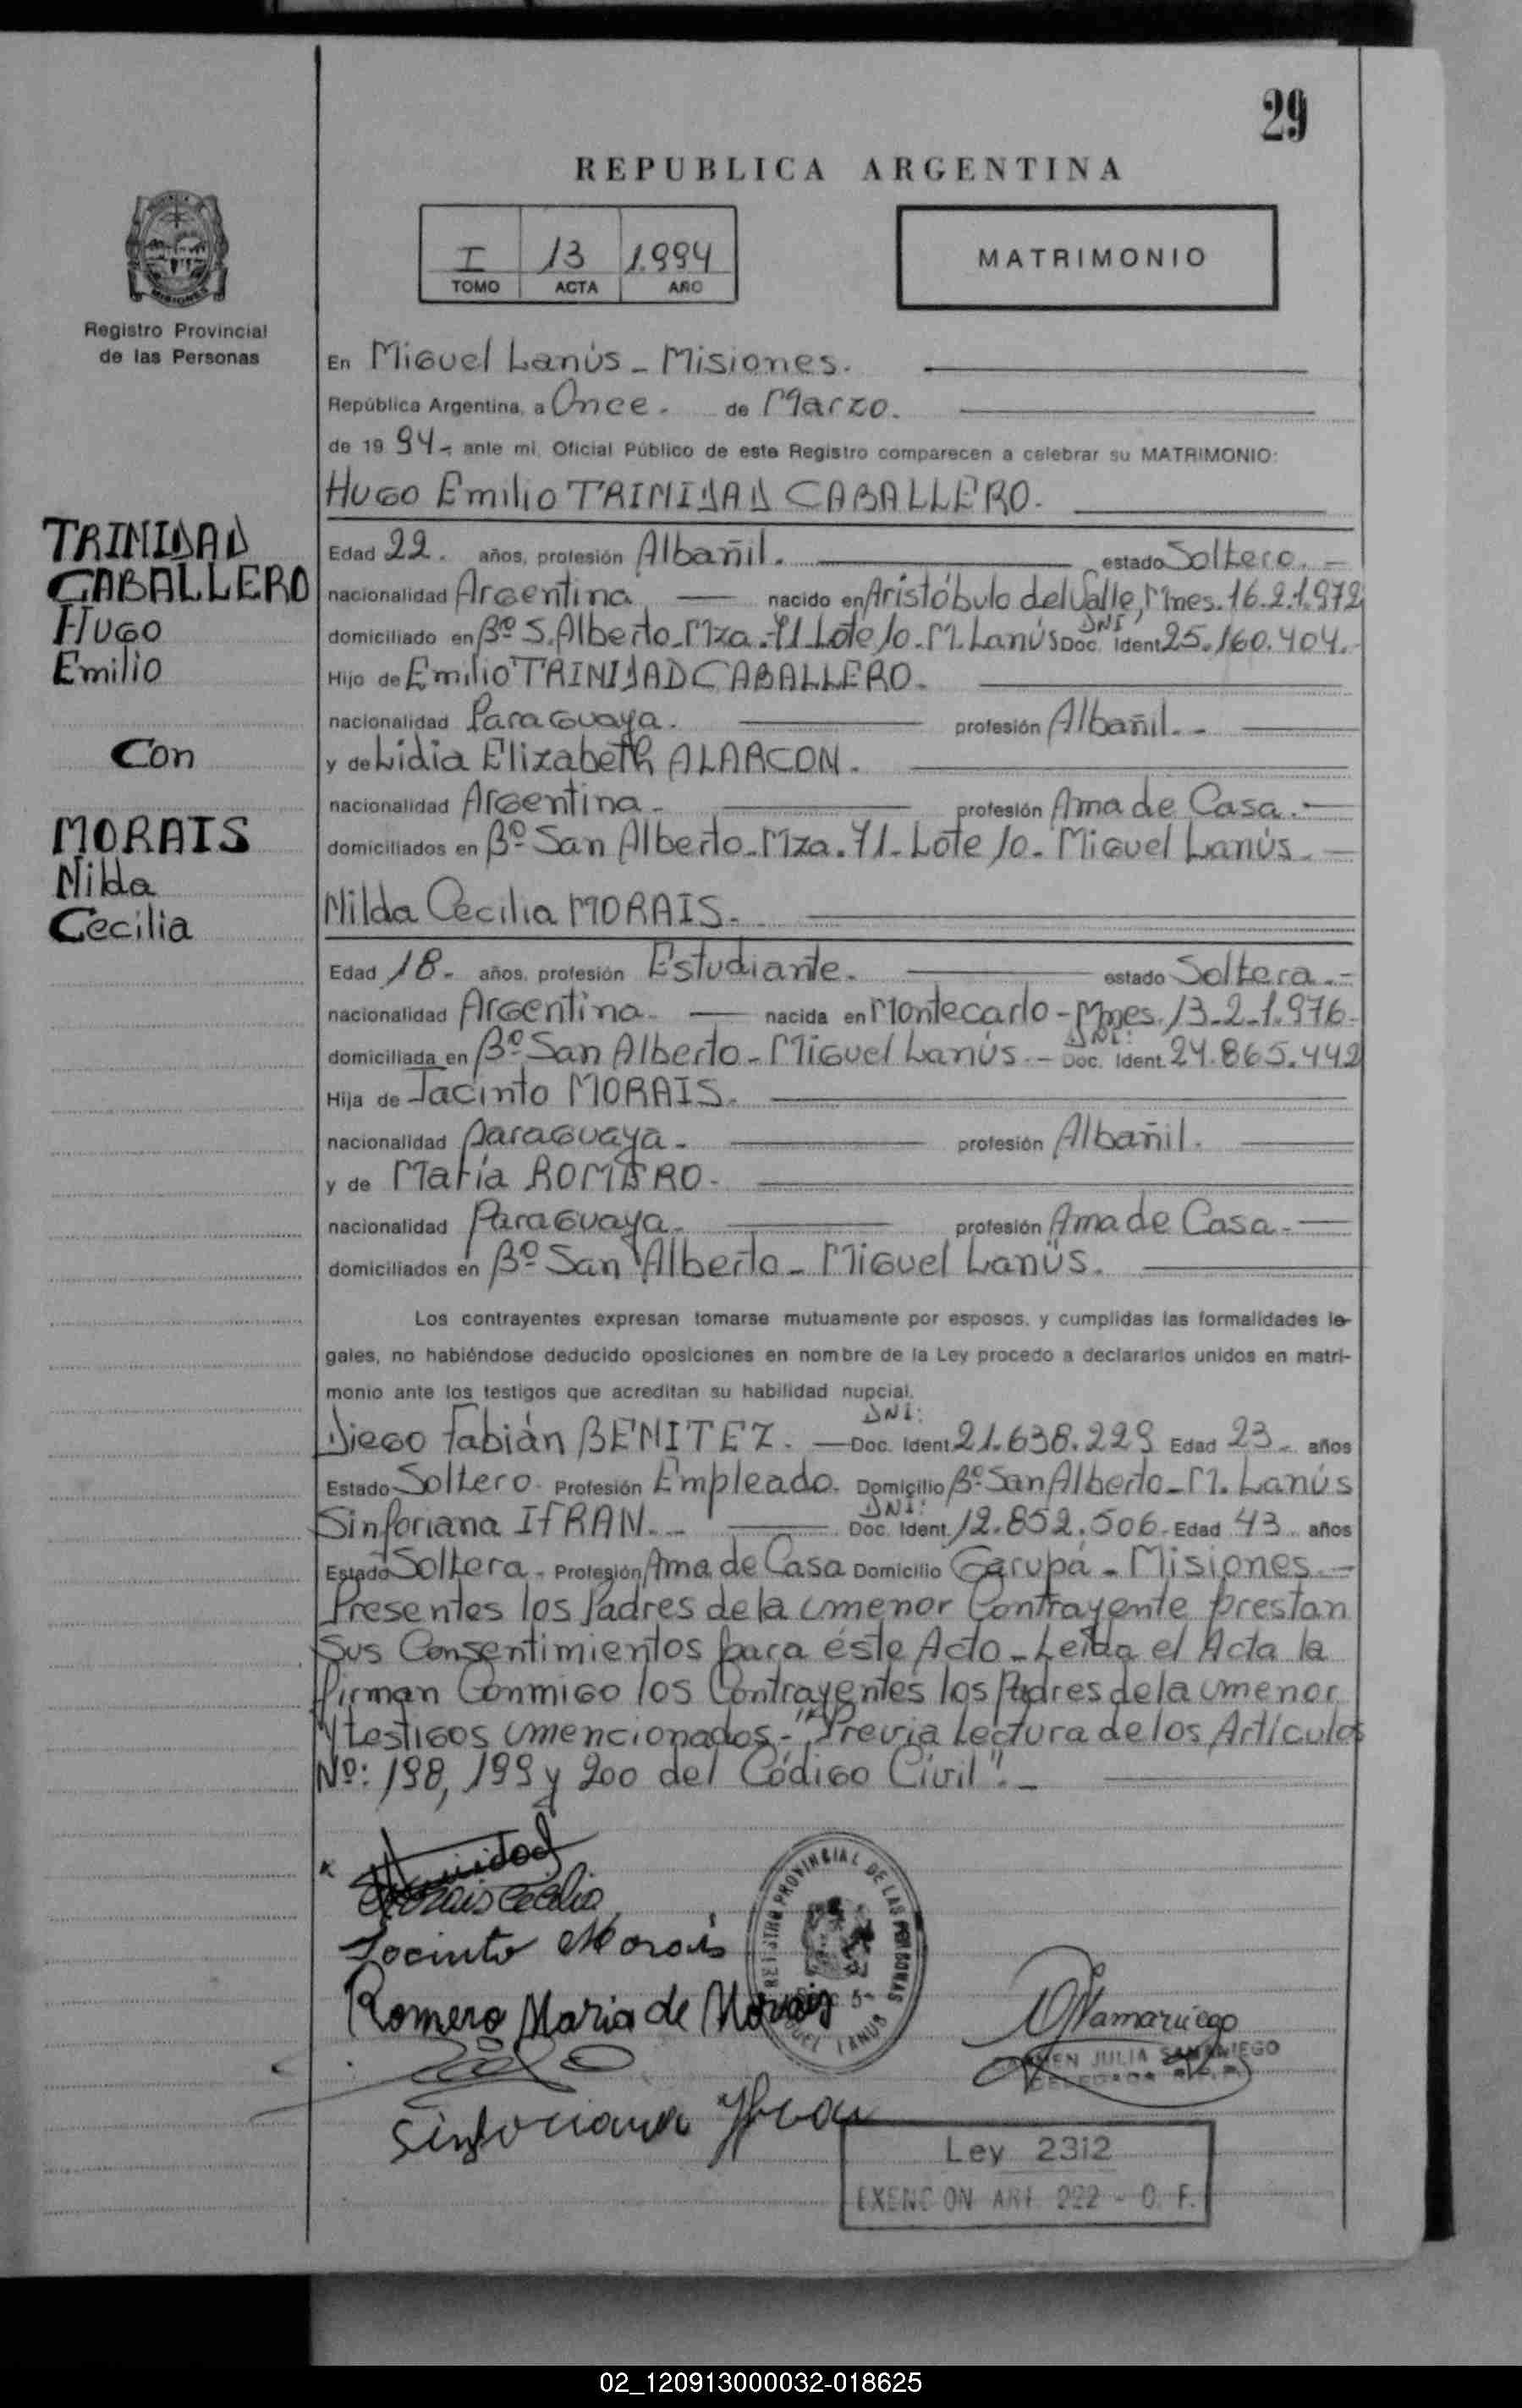 29
REPUBLICA ARGENTINA
I 13 1.994
TOMO ACTA AÑO
MATRIMONIO
MISIONES
Registro Provincial
de las Personas
En Miguel Lanús - Misiones.
República Argentina, a Once. de Marzo.
de 19 94- ante mi, Oficial Público de este Registro comparecen a celebrar su MATRIMONIO:
Hugo Emilio TRINIDAD CABALLERO.
TRINIDAD
CABALLERO
Hugo
Emilio
Con
MORAIS
Nilda
Cecilia
Edad 22. años, profesión Albañil. estado Soltero. -
nacionalidad Argentina nacido en Aristóbulo del Valle, Mnes. 16.2.1.972
domiciliado en Bº S. Alberto-Mza.-71-Lote 10-M. Lanús DNI Doc. Ident 25.160.404.
Hijo de Emilio TRINIDAD CABALLERO.
nacionalidad Paraguaya. profesión Albañil. -
y de Lidia Elizabeth ALARCON.
nacionalidad Argentina. profesión Ama de Casa.
domiciliados en Bº San Alberto-Mza.71-Lote 10-Miguel Lanús.
Nilda Cecilia MORAIS.
Edad 18. años, profesión Estudiante. estado Soltera.-
nacionalidad Argentina. nacida en Montecarlo-Mnes. 13-2-1.976-
domiciliada en Bº San Alberto-Miguel Lanús.- DNI: Doc. Ident. 24.865.442
Hija de Jacinto MORAIS.
nacionalidad paraguaya. profesión Albañil.
y de María ROMERO.
nacionalidad Paraguaya. profesión Ama de Casa.
domiciliados en Bº San Alberto-Miguel Lanús.
Los contrayentes expresan tomarse mutuamente por esposos, y cumplidas las formalidades le-
gales, no habiéndose deducido oposiciones en nombre de la Ley procedo a declararlos unidos en matri-
monio ante los testigos que acreditan su habilidad nupcial.
Diego Fabián BENITEZ. DNI: Doc. Ident 21.638.229 Edad 23. años
Estado Soltero. Profesión Empleado. Domicilio Bº San Alberto-M. Lanús
Sinforiana IFRAN. DNI: Doc. Ident. 12.852.506. Edad 43 años
Estado Soltera. Profesión Ama de Casa Domicilio Garupá-Misiones.-
Presentes los Padres de la menor Contrayente prestan
sus Consentimientos para éste Acto-Leída el Acta la
firman Conmigo los Contrayentes los Padres de la menor
y testigos mencionados.-"Previa Lectura de los Artículos
Nº: 198, 199 y 200 del Código Civil".-
Trinidad
Morais Cecilia
Jacinto Morais
Romero Maria de Morais
Sinforiana Ifran
REGISTRO PROVINCIAL DE LAS PERSONAS
MIGUEL LANUS
CARMEN JULIA SAMANIEGO
DELEGADA
Ley 2312
EXENCION ART. 222 - C. F.
02_120913000032-018625